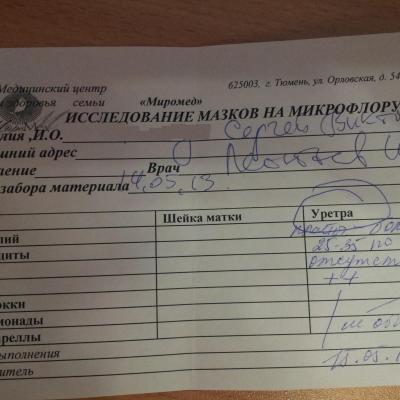 Медицинский центр
здоровья семьи «Миромед» 625003, г. Тюмень, ул. Орловская, д. 54
ИССЛЕДОВАНИЕ МАЗКОВ НА МИКРОФЛОРУ
лия ,И.О. Сергей
шний адрес
ление Врач
забора материала 14.05.13.
Шейка матки Уретра
лий
циты 25-35 по
отсутств
++
окки
монады не об
реллы
ыполнения 15.05.1
итель